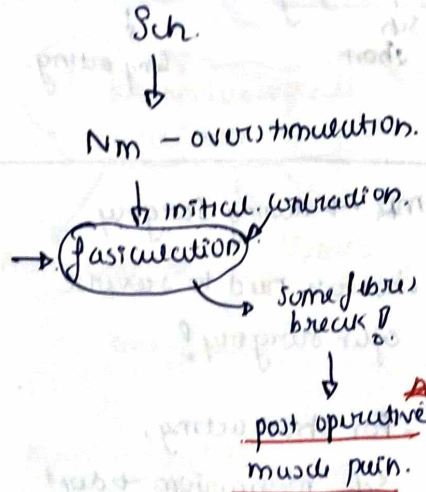 Sch.
Nm - overstimulation.
initial contradion.
fasiculation
some fibres
break!
post operative
muscle pain.